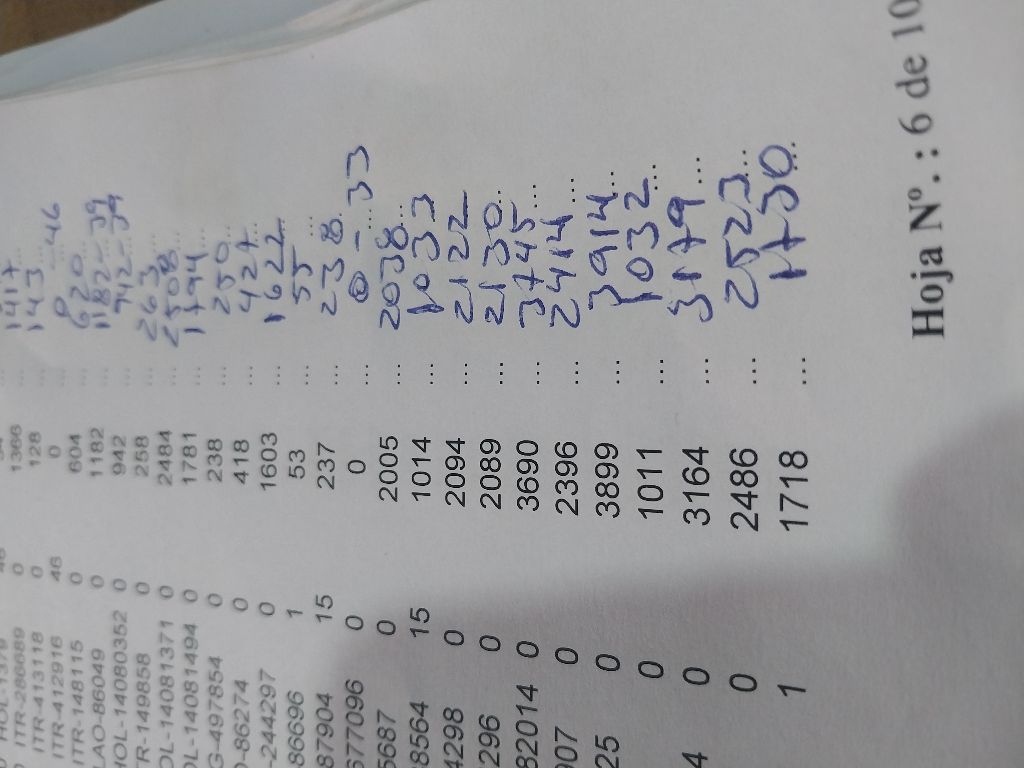 ITR-286689 0 1366 ... 1417
ITR-413118 0 128 ... 143
ITR-412916 46 0 ... 0 - 46
ITR-148115 0 604 ... 620
LAO-86049 0 1182 ... 1182-39
HOL-14080352 0 942 ... 942-39
TR-149858 0 258 ... 263
OL-14081371 0 2484 ... 2508
OL-14081494 0 1781 ... 1794
G-497854 0 238 ... 250
-86274 0 418 ... 427
-244297 0 1603 ... 1622
86696 1 53 ... 55
87904 15 237 ... 238 8
677096 0 0 ... 0 - 33
5687 0 2005 ... 2038
8564 15 1014 ... 1033
4298 0 2094 ... 2122
296 0 2089 ... 2130
82014 0 3690 ... 3745
907 0 2396 ... 2414
25 0 3899 ... 3914
0 1011 ... 1032
4 0 3164 ... 3179
0 2486 ... 2523
1 1718 ... 1730
Hoja Nº.: 6 de 10